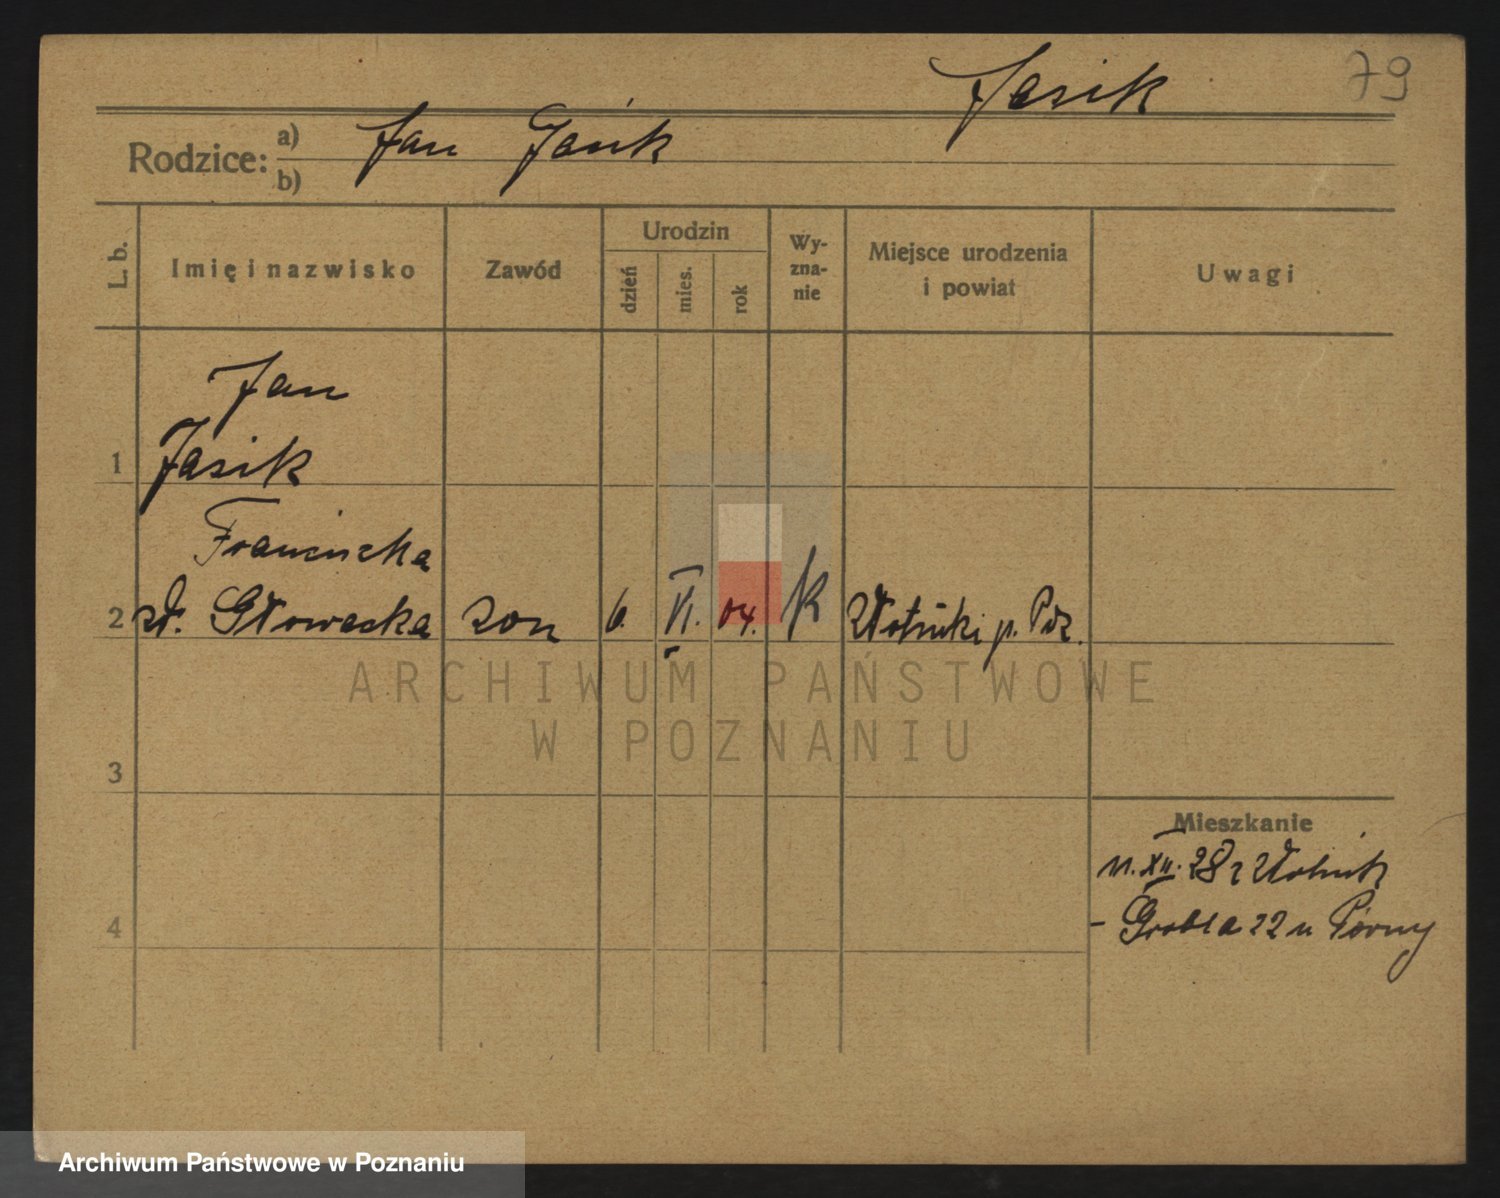 Jasik
79
Rodzice:
a) Jan Jasik
b)
L. b.
Imię i nazwisko
Zawód
Urodzin
dzień
mies.
rok
Wy-
zna-
nie
Miejsce urodzenia
i powiat
Uwagi
Jan
1 Jasik
Franciszka
2 Głowacka żon 6. VI. 04. K Złotniki p. Poz.
ARCHIWUM PAŃSTWOWE
W POZNANIU
3
Mieszkanie
XII. 28 z Złotnik
4
- Grobla 22 u
Archiwum Państwowe w Poznaniu